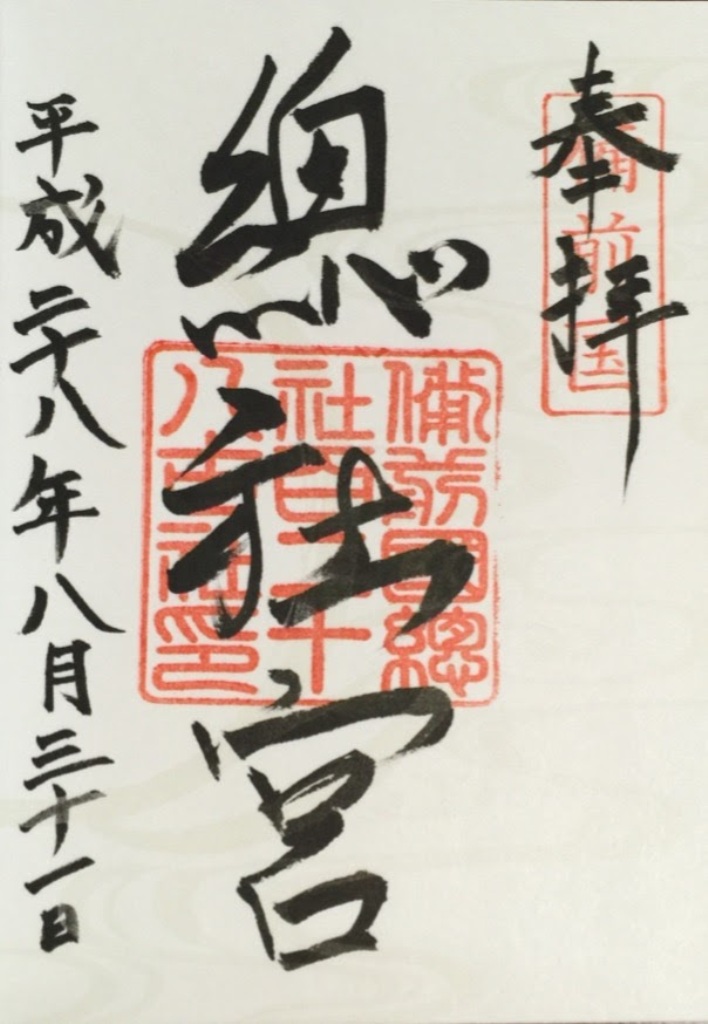 奉拝
備前国
總社宮
備前國總
社百二十
八社印
平成二十八年八月三十一日